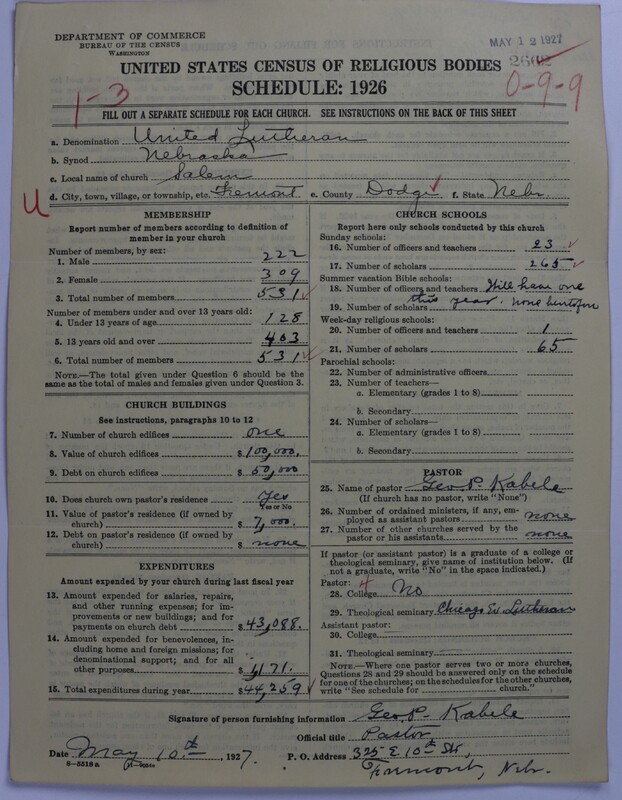 DEPARTMENT OF COMMERCE
BUREAU OF THE CENSUS
WASHINGTON
MAY 12 1927
2662
UNITED STATES CENSUS OF RELIGIOUS BODIES
SCHEDULE: 1926
0-9-9
1-3
FILL OUT A SEPARATE SCHEDULE FOR EACH CHURCH. SEE INSTRUCTIONS ON THE BACK OF THIS SHEET
a. Denomination United Lutheran
b. Synod Nebraska
c. Local name of church Salem
d. City, town, village, or township, etc. Fremont e. County Dodge f. State Nebr
U
MEMBERSHIP
Report number of members according to definition of
member in your church
Number of members, by sex:
1. Male 222
2. Female 309
3. Total number of members 531
Number of members under and over 13 years old:
4. Under 13 years of age 128
5. 13 years old and over 403
6. Total number of members 531
NOTE.—The total given under Question 6 should be
the same as the total of males and females given under Question 3.
CHURCH BUILDINGS
See instructions, paragraphs 10 to 12
7. Number of church edifices one
8. Value of church edifices $100,000.
9. Debt on church edifices $50,000
10. Does church own pastor's residence Yes
Yes or No
11. Value of pastor's residence (if owned by
church) $7,000.
12. Debt on pastor's residence (if owned by
church) $ none
EXPENDITURES
Amount expended by your church during last fiscal year
13. Amount expended for salaries, repairs,
and other running expenses; for im-
provements or new buildings; and for
payments on church debt $43,088.
14. Amount expended for benevolences, in-
cluding home and foreign missions; for
denominational support; and for all
other purposes $1171.
15. Total expenditures during year $44,259
CHURCH SCHOOLS
Report here only schools conducted by this church
Sunday schools:
16. Number of officers and teachers 23
17. Number of scholars 265
Summer vacation Bible schools:
18. Number of officers and teachers Will have one
19. Number of scholars this year. none heretofore
Week-day religious schools:
20. Number of officers and teachers 1
21. Number of scholars 65
Parochial schools:
22. Number of administrative officers
23. Number of teachers—
a. Elementary (grades 1 to 8)
b. Secondary
24. Number of scholars—
a. Elementary (grades 1 to 8)
b. Secondary
PASTOR
25. Name of pastor Geo. P. Kabele
(If church has no pastor, write "None")
26. Number of ordained ministers, if any, em-
ployed as assistant pastors none
27. Number of other churches served by the
pastor or his assistants none
If pastor (or assistant pastor) is a graduate of a college or
theological seminary, give name of institution below. (If
not a graduate, write "No" in the space indicated.)
Pastor: 4
28. College No
29. Theological seminary Chicago Ev. Lutheran
Assistant pastor:
30. College
31. Theological seminary
NOTE.—Where one pastor serves two or more churches,
Questions 28 and 29 should be answered only on the schedule
for one of the churches; on the schedules for the other churches,
write "See schedule for church."
Signature of person furnishing information Geo. P. Kabele
Official title Pastor
Date May 10th, 1927. P. O. Address 325 E. 10th Str,
8-5518a
Fremont, Nebr.